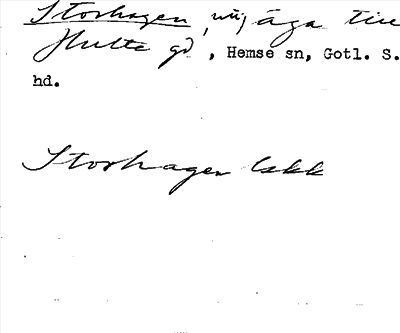 Storhagen, utäga till
Hulte gd, Hemse sn, Gotl. S.
hd.
Storhagen